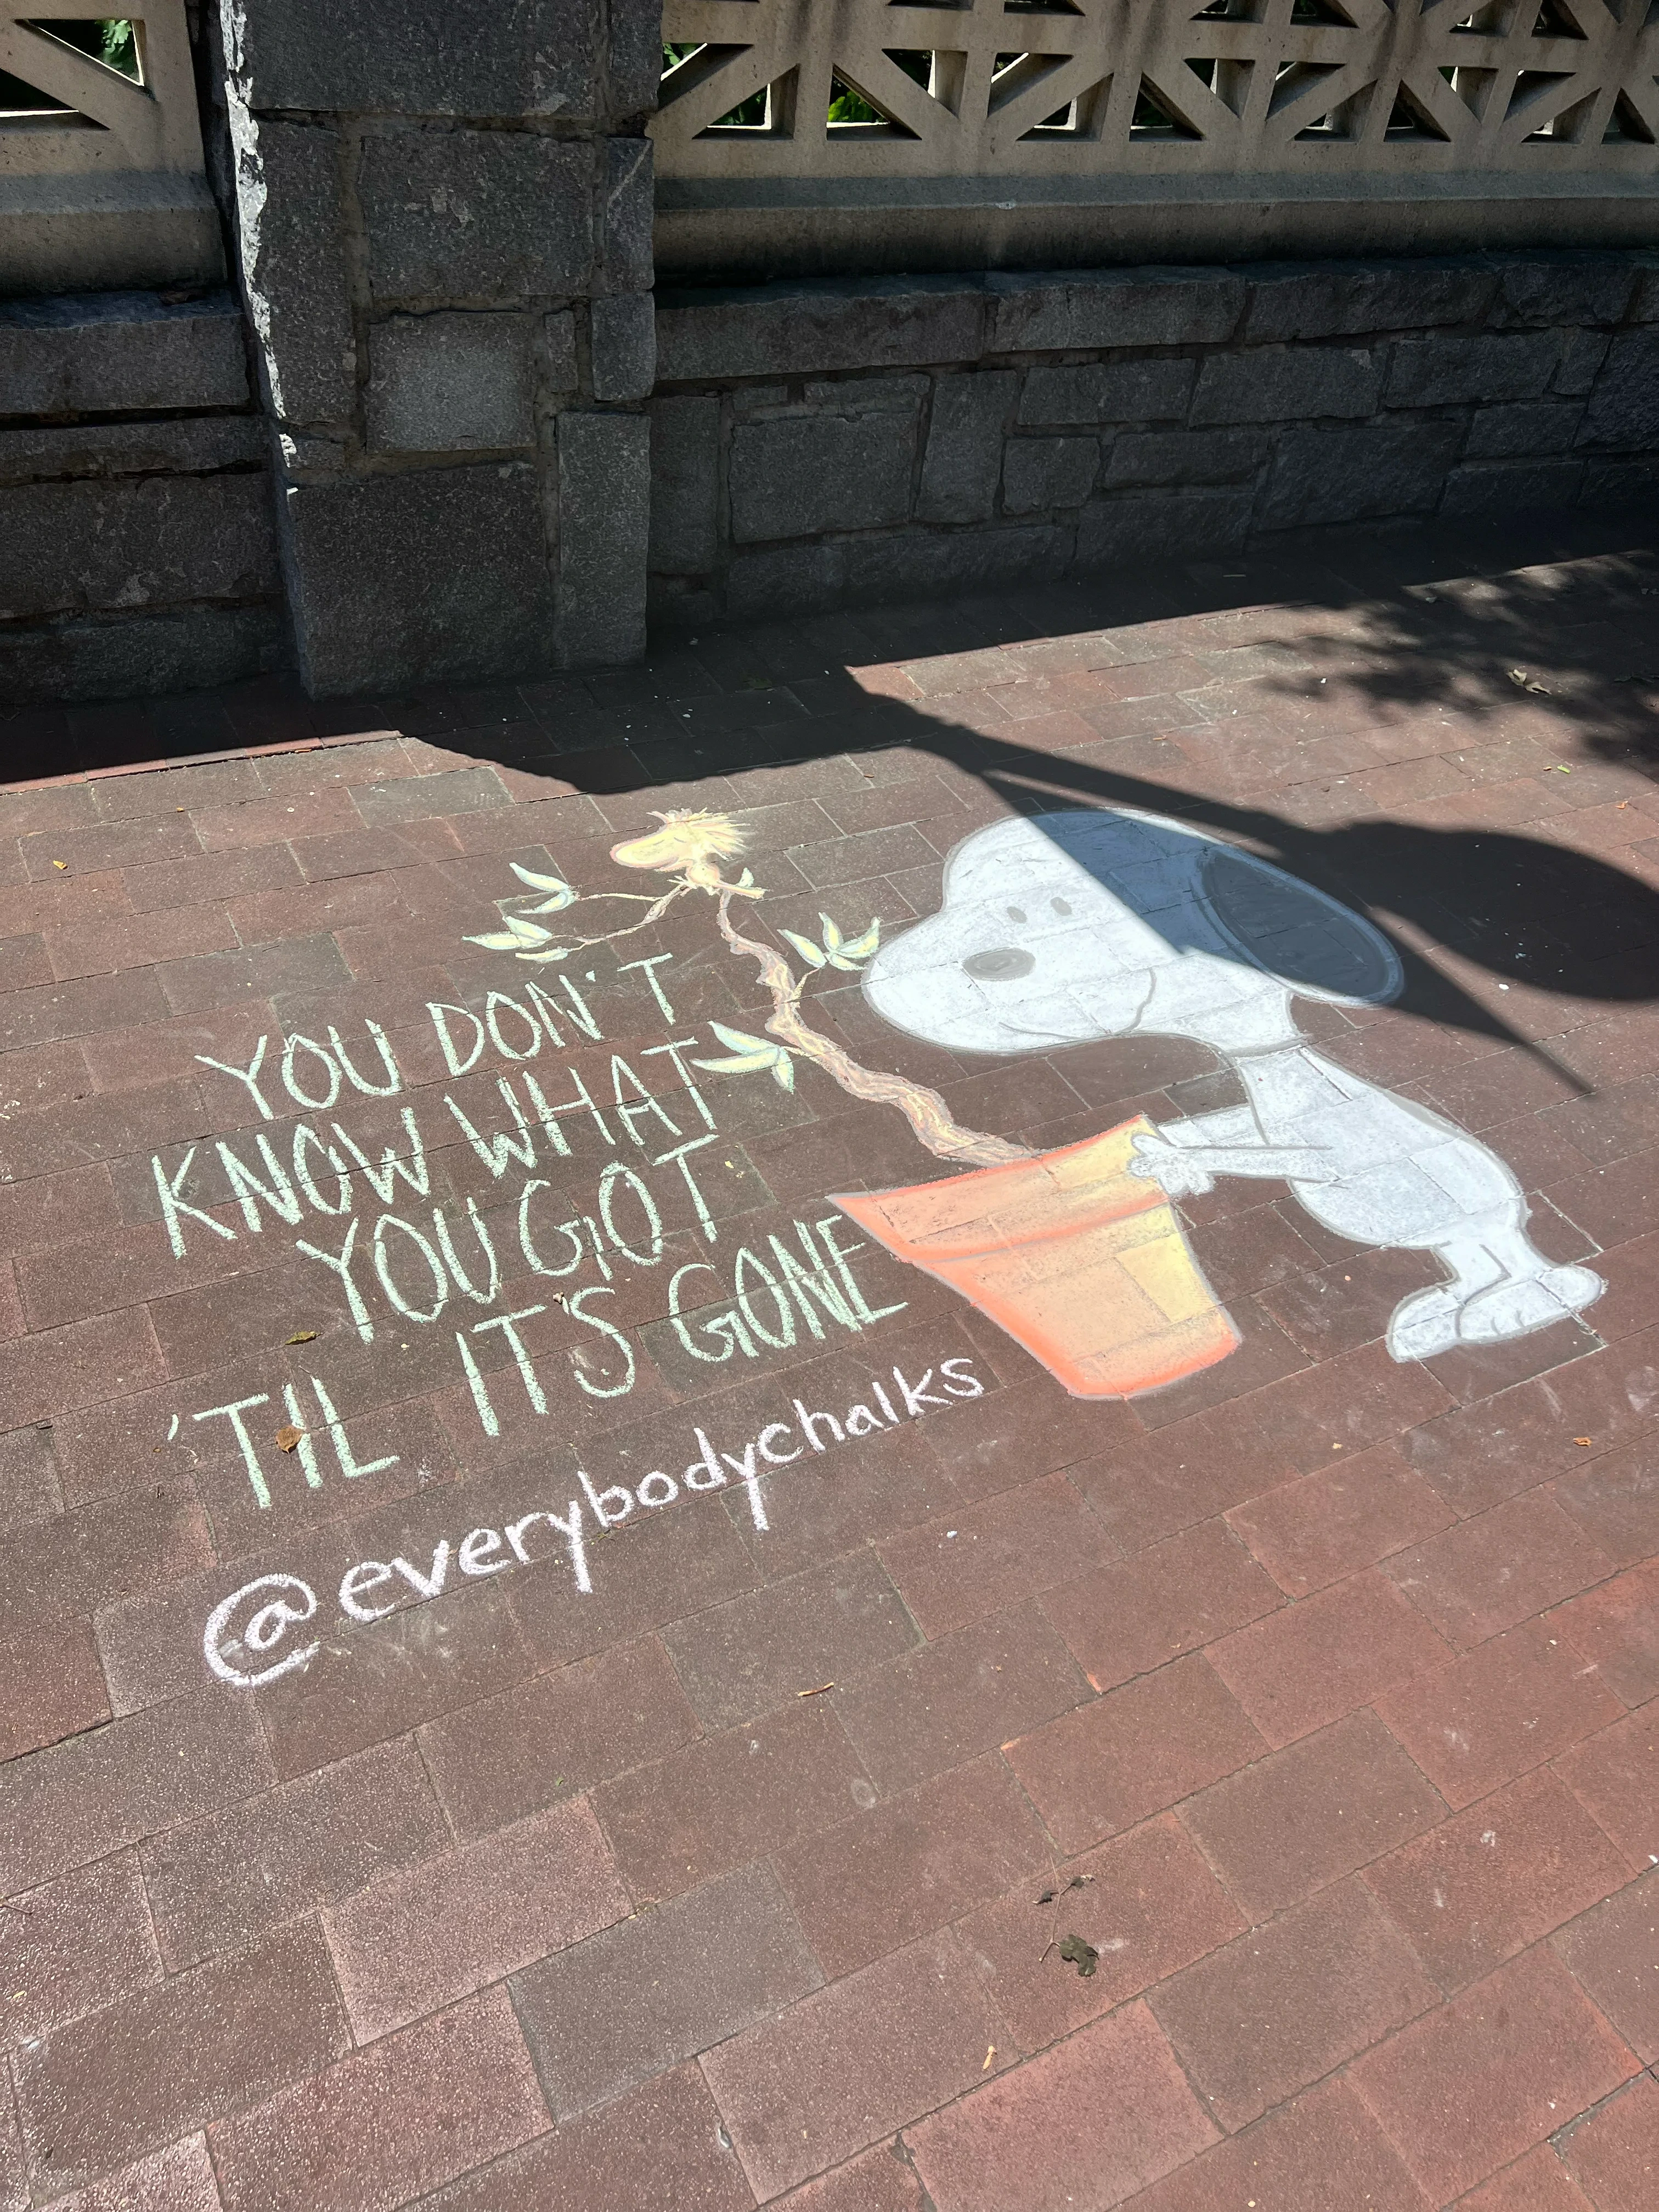 YOU DON'T
KNOW WHAT
YOU GOT
'TIL IT'S GONE
@everybodychalks